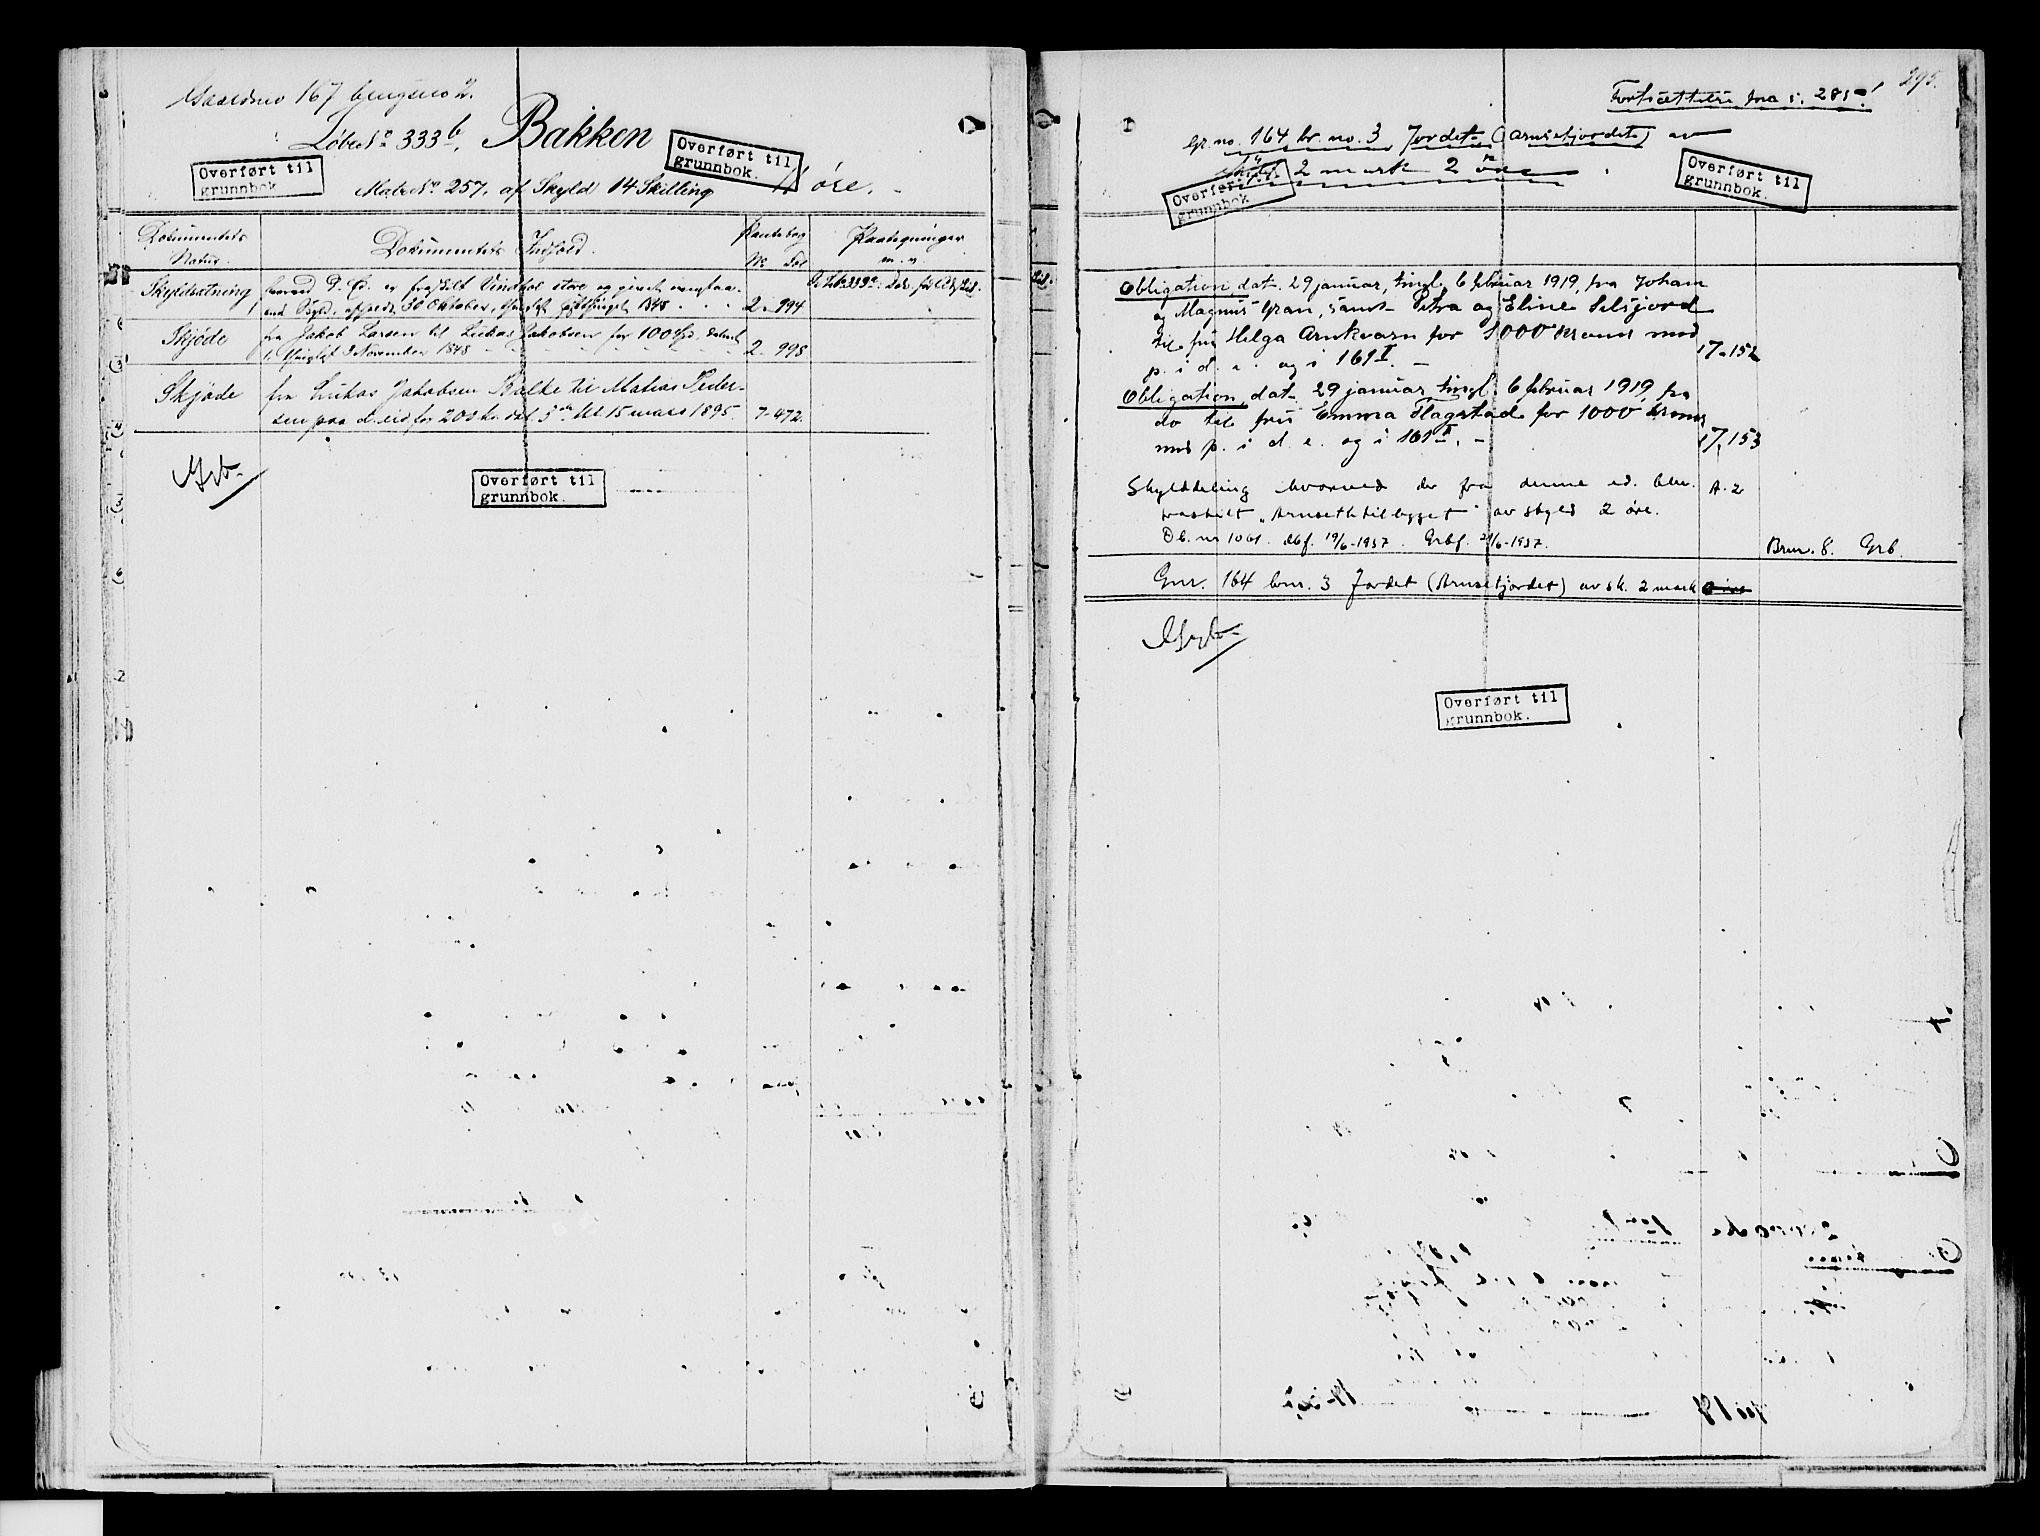 Gaardsno 167 brugsno 2.
Løbe No 333b, Bakken
Overført til
grunnbok.
Overført til
grunnbok.
Matr No 257, af Skyld 14 Skilling
11 øre.
Dokumentets
Natur.
Dokumentets Indhold.
Pantebog
No Fol
Paategninger
m. v.
Skyldsætning
hvorved D. Ed. er fraskilt store og givet
30 Oktober, 1848
2. 994
Skjøde
fra Jakob Larsen til Lukas Jakobsen for 100 Spd.
November 1848
2. 998
Skjøde
fra Lukas Jakobsen til Matias Peder-
sen paa d. eid. for 200 kr. dat. 5te 15 mars 1895.
7-472.
Grb.
Overført til
grunnbok.
295.
Fortsættelse fra s. 285.
Gr. no. 164 br. no. 3 Jordet (Arnsetjordet) av
2 mark 2 øre
Overført til
grunnbok
Overført til
grunnbok.
Obligation, dat. 29 januar, tingl. 6 februar 1919, fra Johan
og Magnus Gran, samt Petra og Eline Selsjord
til frk Helga Arnkværn for 1000 kroner med
p. i d. e. og i 161 I. –
17-152
Obligation, dat. 29 januar tingl. 6 februar 1919, fra
do til frk Emma Flagstad for 1000 kroner
med p. i d. e. og i 161 II. –
17, 153
Skylddeling hvorved der fra denne ed. blev
fraskilt "Arnsethtillegget" av skyld 2 øre.
A. 2
Db. nr 1061. dbf. 19/6-1937. Grbf. 21/6-1937.
Brnr. 8. Grb.
Gnr. 164 bnr. 3 Jordet (Arnsetjordet) av sk. 2 mark
Grb.
Overført til
grunnbok.